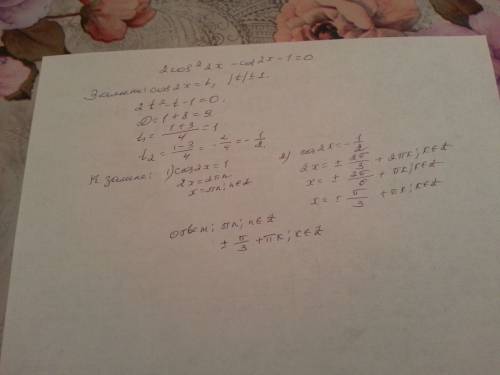 2cos²2x - cos2x - 1 = 0.
Замена: cos2x = t, |t| ≤ 1.
2t² - t - 1 = 0.
D = 1 + 8 = 9.
t₁ = (1+3)/4 = 1
t₂ = (1-3)/4 = -2/4 = -1/2.
К замене: 1) cos2x = 1
2x = 2πn.
x = πn; n∈Z
2) cos2x = -1/2
2x = ± 2π/3 + 2πk; k∈Z
x = ± 2π/6 + πk; k∈Z
x = ± π/3 + πk; k∈Z
ответ: πn; n∈Z
± π/3 + πk; k∈Z